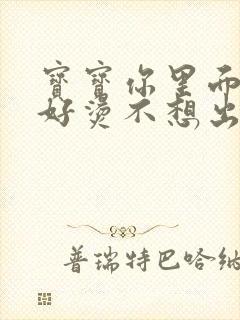 寶寶你里面
好燙不想出
普瑞特巴哈納